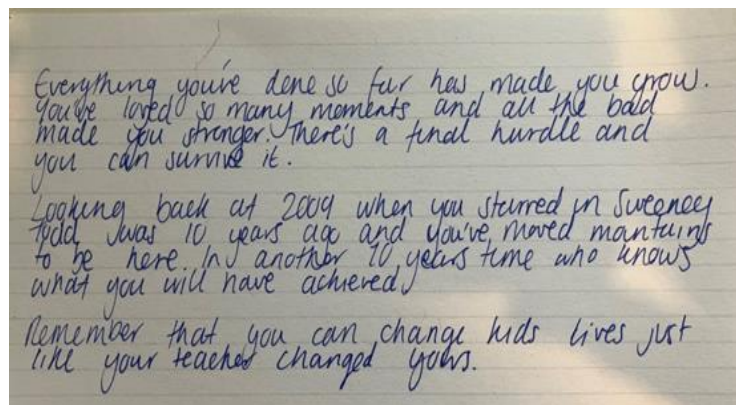 Everything you've done so far has made you grow.
You've loved so many moments and all the bad
made you stronger. There's a final hurdle and
you can survive it.
Looking back at 2009 when you starred in Sweeney
Todd was 10 years ago and you've moved mountains
to be here. In another 10 years time who knows
what you will have achieved.
Remember that you can change kids lives just
like your teacher changed yours.